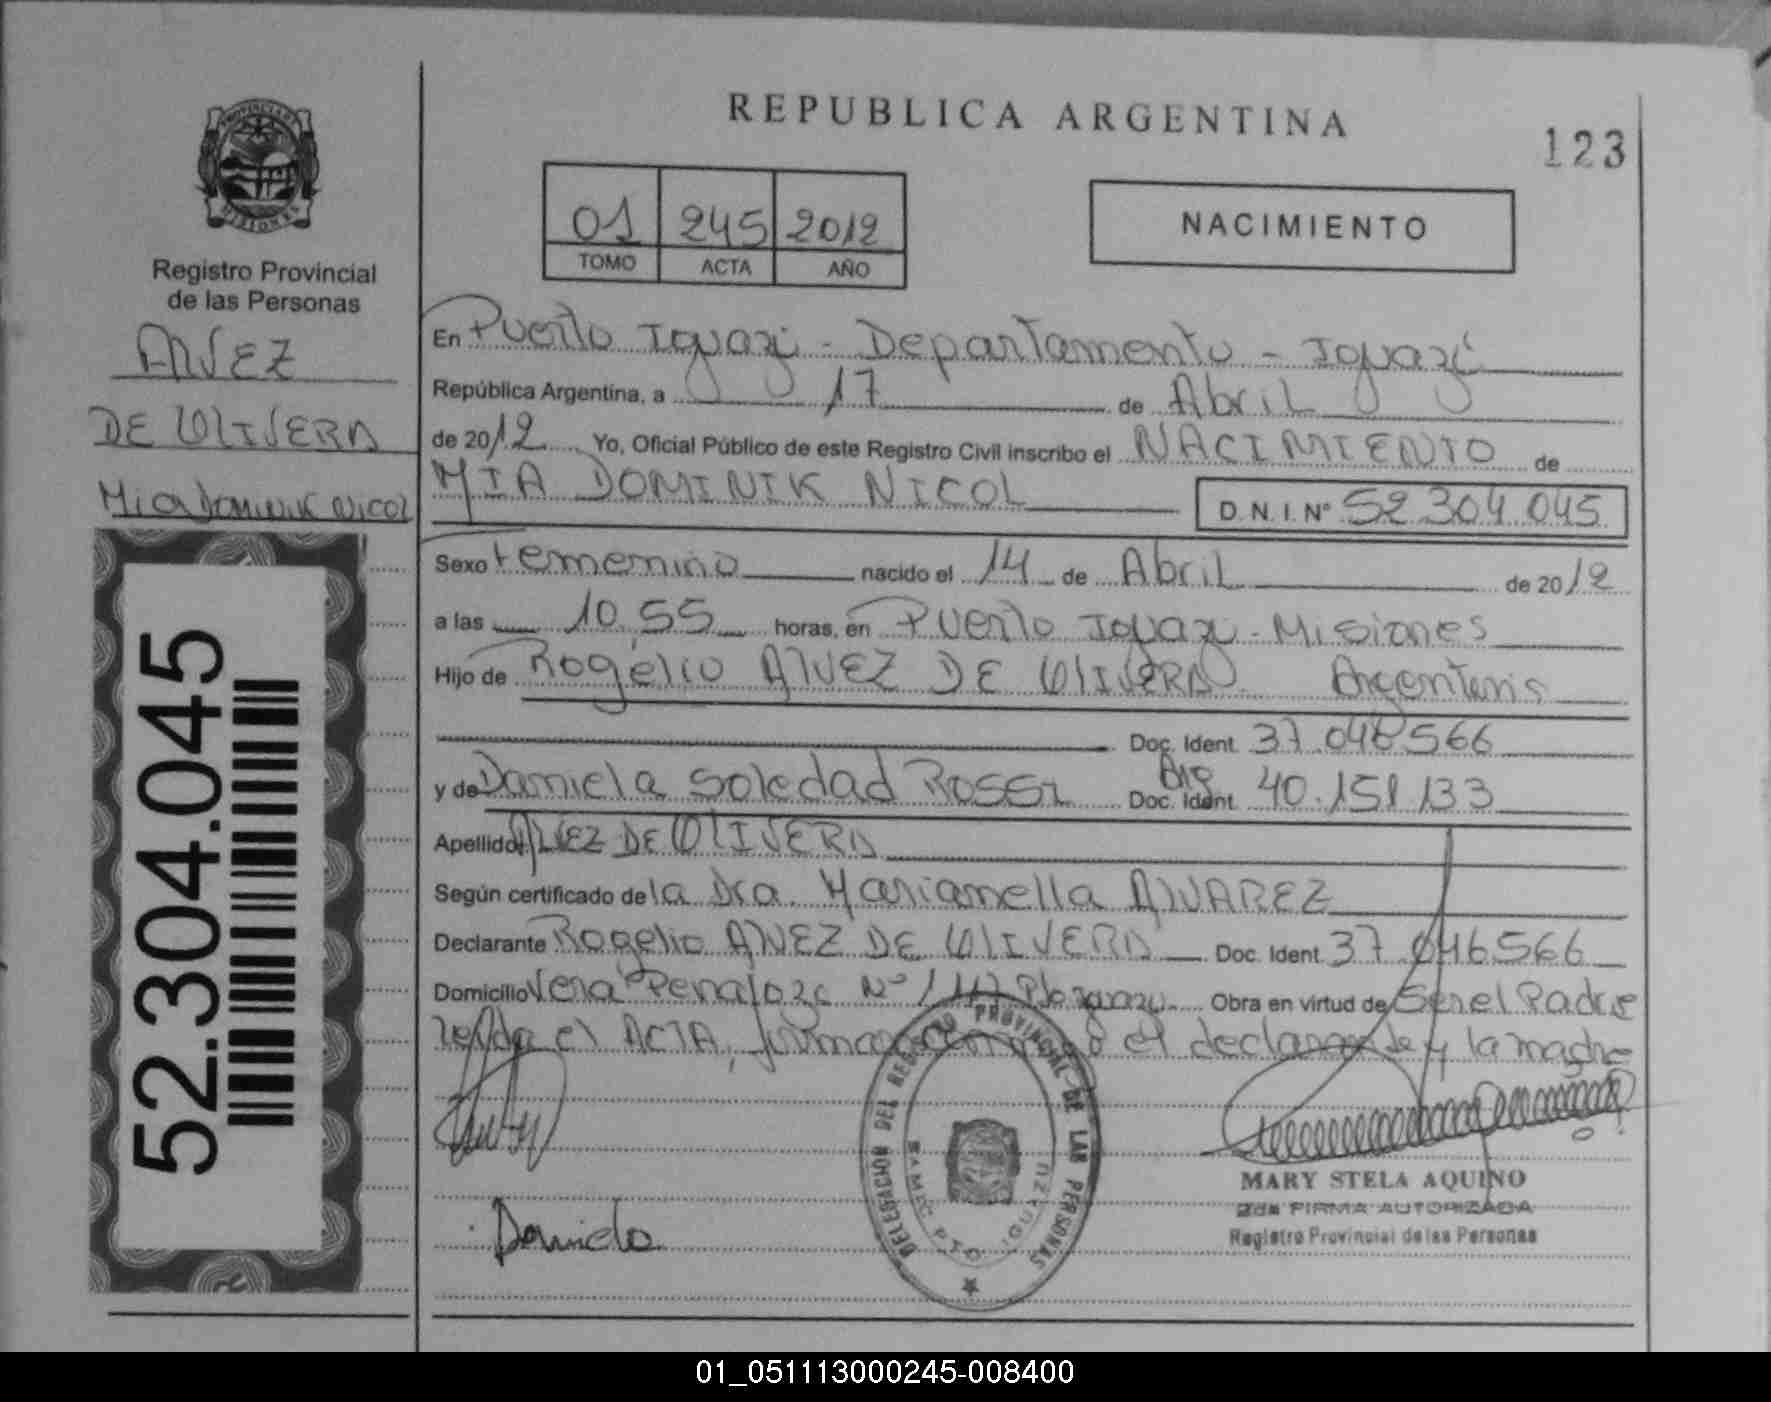 REPUBLICA ARGENTINA
123
PROVINCIA DE MISIONES
Registro Provincial
de las Personas
ALVEZ
DE OLIVERA
Mia Dominik Nicol
52.304.045
01 245 2012
TOMO ACTA AÑO
NACIMIENTO
En Puerto Iguazú - Departamento - Iguazú
República Argentina, a 17 de Abril
de 2012 Yo, Oficial Público de este Registro Civil inscribo el NACIMIENTO de
MIA DOMINIK NICOL D.N.I. N° 52.304.045
Sexo Femenino nacido el 14 de Abril de 2012
a las 10.55 horas, en Puerto Iguazu - Misiones
Hijo de Rogelio ALVEZ DE OLIVERA Argentino
Doc. Ident. 37.046566
y de Daniela Soledad Rossi Arg Doc. Ident. 40.151.133
Apellido ALVEZ DE OLIVERA
Según certificado de la Dra. Marianella ALVAREZ
Declarante Rogelio ALVEZ DE OLIVERA Doc. Ident. 37.046566
Domicilio Vera Peñaloza N° Pto Iguazu Obra en virtud de Ser el Padre
el ACTA, firmando el declarante y la madre
DELEGACION DEL REGISTRO PROVINCIAL DE LAS PERSONAS
PTO. IGUAZU
Daniela
MARY STELA AQUINO
2da FIRMA AUTORIZADA
Registro Provincial de las Personas
01_051113000245-008400